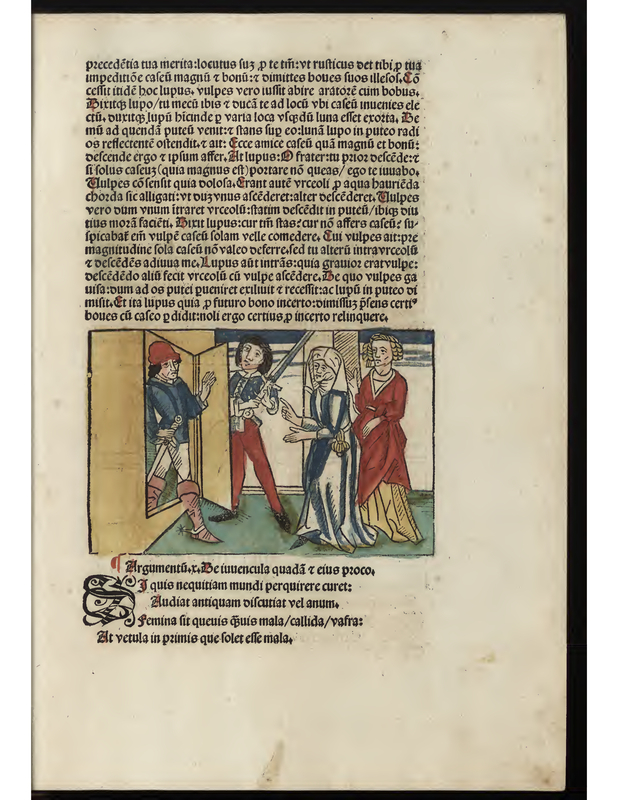 precedētia tua merita:locutus suꝫ ꝓ te tm̄:vt rusticus det tibi ꝓ tua
impeditiōe caseū magnū ⁊ bonū:⁊ dimittes boues suos illesos. Cō
cessit itidē hoc lupus. vulpes vero iussit abire aratorē cum bobus.
Dixitqꝫ lupo/tu mecū ibis ⁊ ducā te ad locū vbi caseū inuenies ele
ctū. duxitqꝫ lupū hīcinde ꝑ varia loca vsqꝫdū luna esset exorta. De
mū ad quendā puteū venit:⁊ stans suꝑ eo:lunā lupo in puteo radi
os reflectentē ostendit.⁊ ait: Ecce amice caseū quā magnū et bonū:
descende ergo ⁊ ipsum affer. At lupus: O frater:tu prior descēde:⁊
si solus caseuꝫ (quia magnus est) portare nō queas/ ego te iuuabo.
Uulpes cōsensit quia dolosa. Erant autē vrceoli ꝓ aqua hauriēda
chorda sic alligati: vt duꝫ vnus ascēderet:alter descēderet. Uulpes
vero dum vnum ītraret vrceolū:statim descēdit in puteū/ibiqꝫ diu
tius morā faciēti. Dixit lupus:cur tm̄ stas? cur nō affers caseū? su
spicabat̄ em̄ vulpē caseū solam velle comedere. Cui vulpes ait:pre
magnitudine sola caseū nō valeo deferre.sed tu alterū intra vrceolū
⁊ descēdēs adiuua me. Lupus aūt intrās: quia grauior erat vulpe:
descēdēdo aliū fecit vrceolū cū vulpe ascēdere. De quo vulpes ga
uisa:dum ad os putei pueniret exiliuit ⁊ recessit:ac lupū in puteo di
misit. Et ita lupus quia ꝓ futuro bono incerto:dimissuꝫ p̄sens certū
boues cū caseo ꝑdidit:noli ergo certius ꝓ incerto relinquere.
¶ Argumentū.x. De iuuencula quadā ⁊ eius proco.
SI quis nequitiam mundi perquirere curet:
Audiat antiquam discutiat vel anum.
Femina sit queuis q̄uis mala/callida/vafra:
At vetula in primis que solet esse mala.